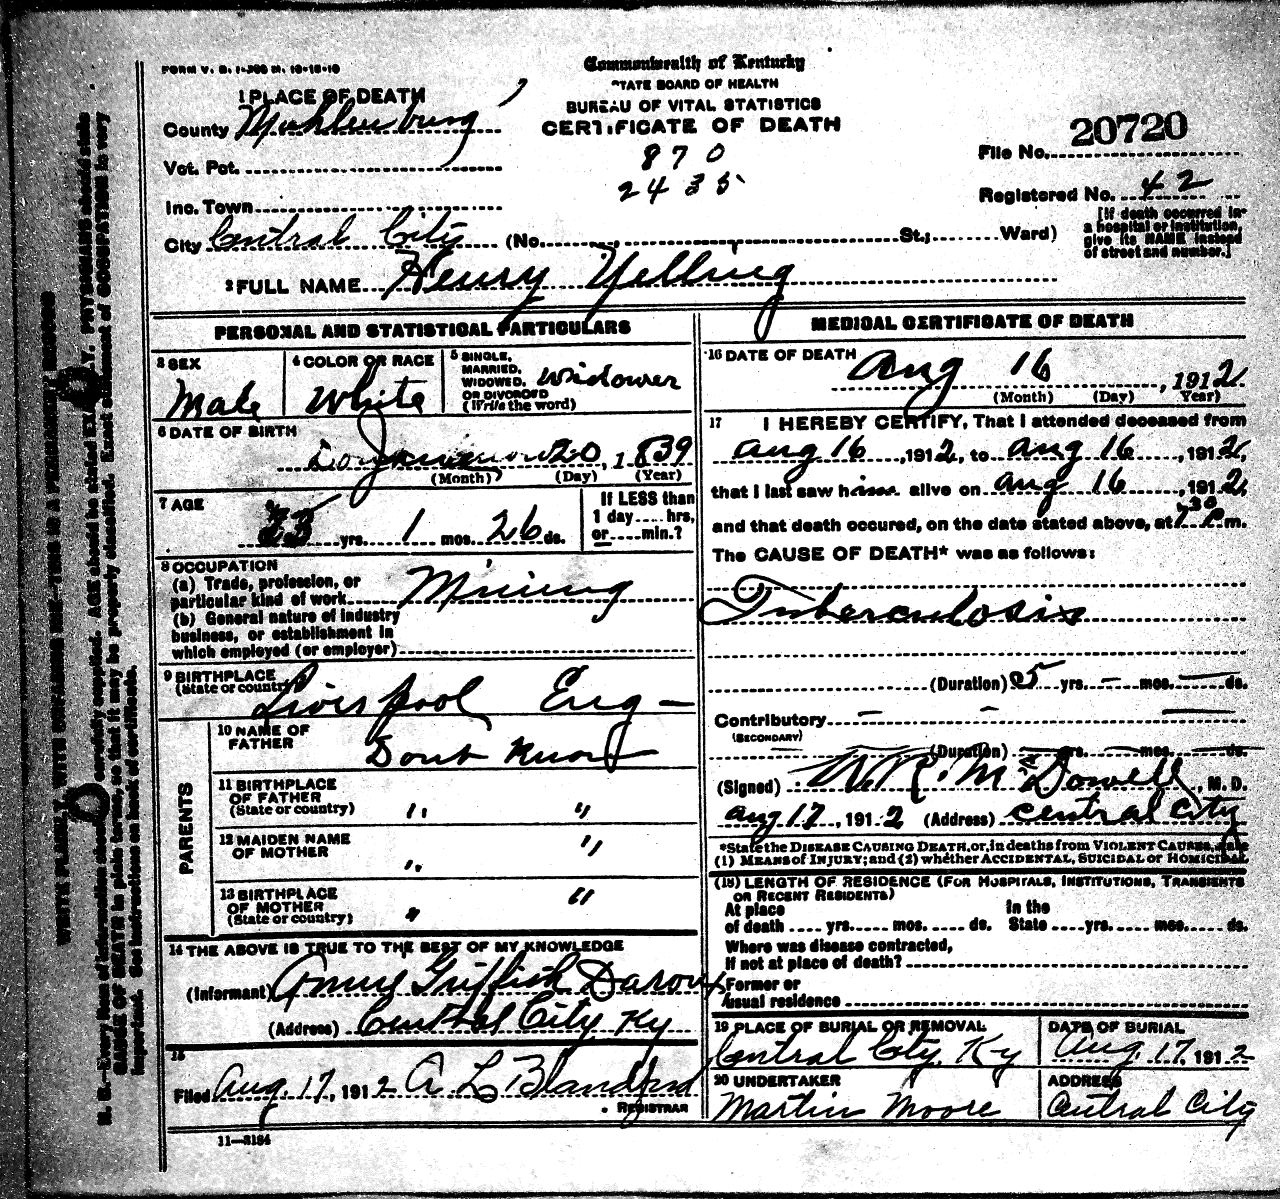 FORM V. S. 1-300 M. 10-18-10
Commonwealth of Kentucky
STATE BOARD OF HEALTH
BUREAU OF VITAL STATISTICS
CERTIFICATE OF DEATH
1 PLACE OF DEATH
County Muhlenburg
Vot. Pct.
Inc. Town
City Central City (No. St.; Ward)
870
2435
File No. 20720
Registered No. 42
[If death occurred in a hospital or institution, give its NAME instead of street and number.]
2 FULL NAME Henry Yelling
PERSONAL AND STATISTICAL PARTICULARS
3 SEX
Male
4 COLOR OR RACE
White
5 SINGLE, MARRIED, WIDOWED, OR DIVORCED (Write the word)
Widower
6 DATE OF BIRTH
20, 1839
(Month) (Day) (Year)
7 AGE
yrs. 1 mos. 26 ds.
If LESS than 1 day .... hrs, or .... min.?
8 OCCUPATION
(a) Trade, profession, or
particular kind of work Mining
(b) General nature of industry
business, or establishment in
which employed (or employer)
9 BIRTHPLACE
(State or country)
Liverpool Eng -
PARENTS
10 NAME OF FATHER
Dont Know
11 BIRTHPLACE OF FATHER (State or country)
" "
12 MAIDEN NAME OF MOTHER
" "
13 BIRTHPLACE OF MOTHER (State or country)
" "
14 THE ABOVE IS TRUE TO THE BEST OF MY KNOWLEDGE
(Informant) Griffith
(Address) Central City Ky
15
Filed Aug. 17, 1912 A L Blandford
REGISTRAR
11—3184
MEDICAL CERTIFICATE OF DEATH
16 DATE OF DEATH
Aug 16, 1912
(Month) (Day) (Year)
17 I HEREBY CERTIFY, That I attended deceased from
Aug 16, 1912, to Aug 16, 1912,
that I last saw him alive on Aug 16, 1912,
and that death occured, on the date stated above, at 7 30 P. m.
The CAUSE OF DEATH* was as follows:
Tuberculosis
(Duration) 5 yrs. — mos. — ds.
Contributory — — —
(SECONDARY)
(Duration) yrs. mos. ds.
(Signed) W.R. McDowell, M. D.
Aug 17, 1912 (Address) Central City
*State the DISEASE CAUSING DEATH, or, in deaths from VIOLENT CAUSES, state
(1) MEANS of INJURY; and (2) whether ACCIDENTAL, SUICIDAL or HOMICIDAL.
(18) LENGTH OF RESIDENCE (FOR HOSPITALS, INSTITUTIONS, TRANSIENTS
OR RECENT RESIDENTS)
At place of death .... yrs. .... mos. .... ds. In the State .... yrs. .... mos. .... ds.
Where was disease contracted,
If not at place of death?
Former or
usual residence
19 PLACE OF BURIAL OR REMOVAL
Central City Ky
DATE OF BURIAL
Aug. 17, 1912
20 UNDERTAKER
Martin Moore
ADDRESS
Central City
WRITE PLAINLY, WITH UNFADING INK—THIS IS A PERMANENT RECORD
N. B.—Every item of information should be carefully supplied. AGE should be stated EXACTLY. PHYSICIANS should state
CAUSE OF DEATH in plain terms, so that it may be properly classified. Exact statement of OCCUPATION is very
important. See instructions on back of certificate.